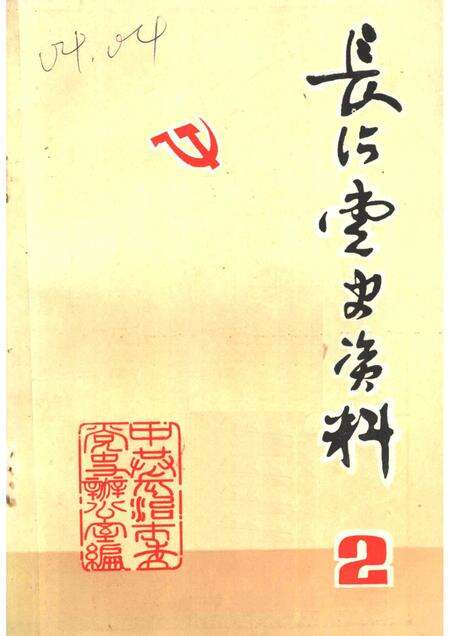 04.04
長治党史资料
中共长治市委
党史辦公室編
2